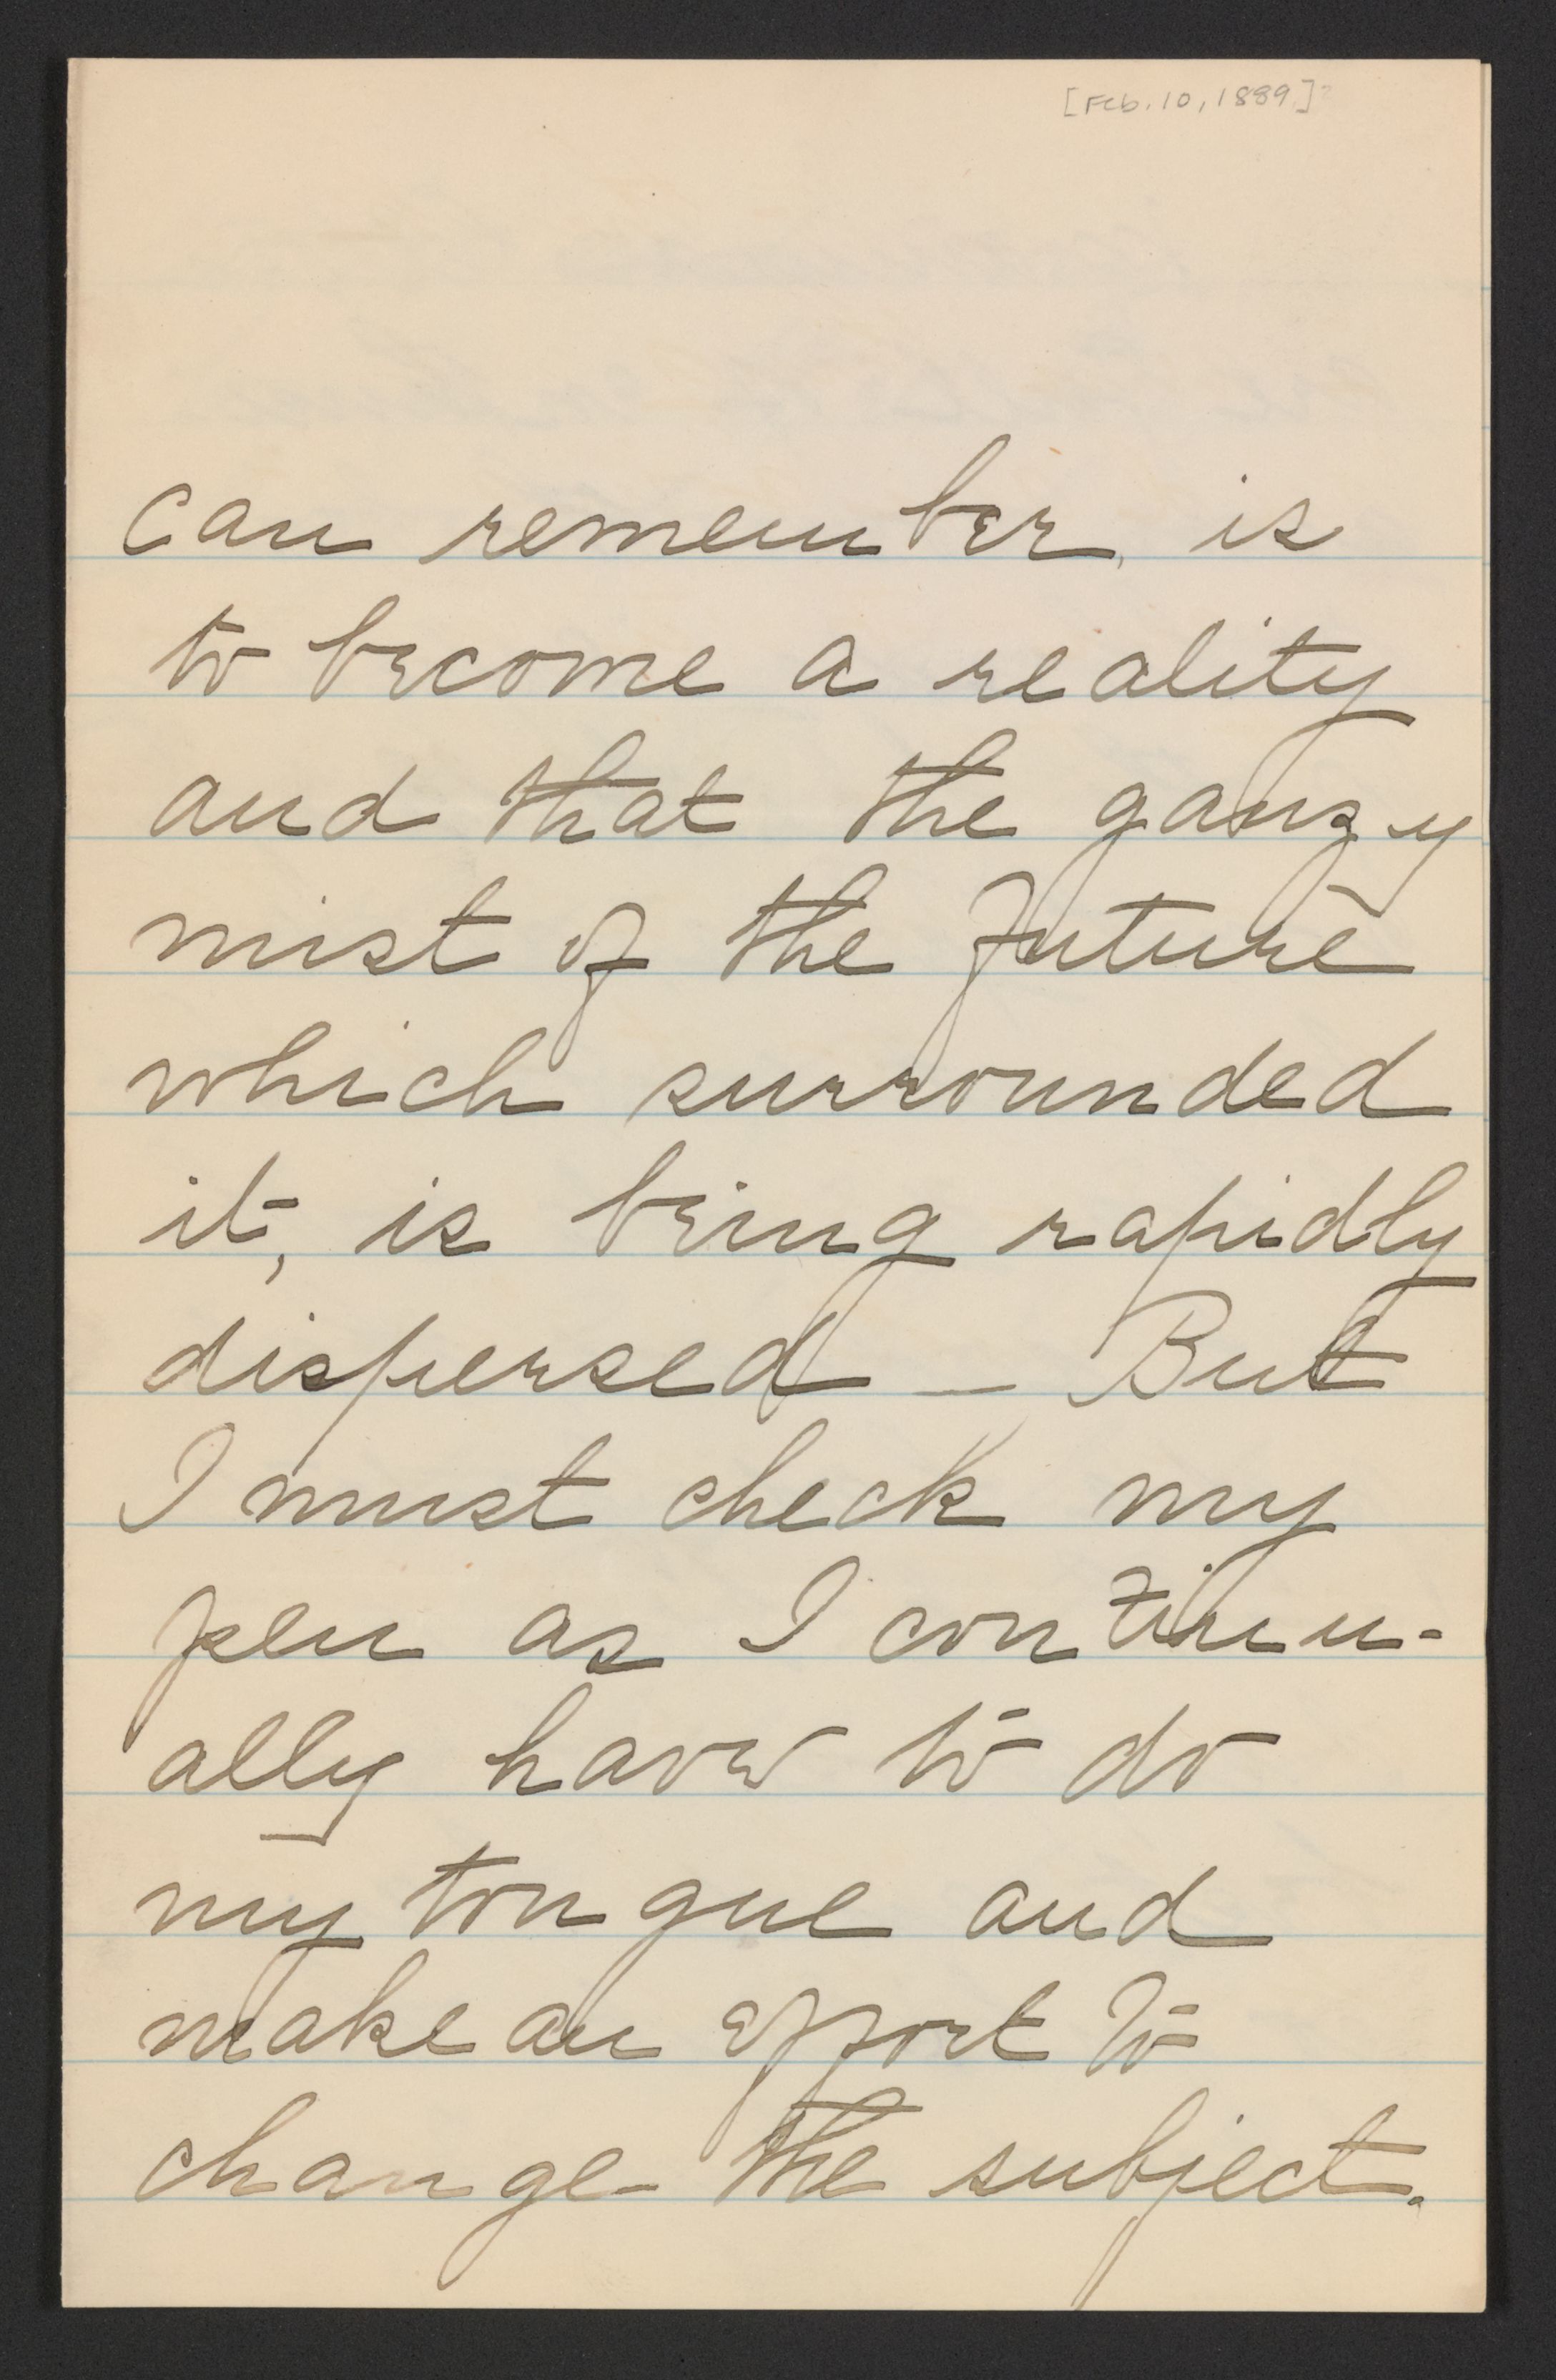 [Feb. 10, 1889]?
can remember, is
to become a reality
and that the gauzy
mist of the future
which surrounded
it, is being rapidly
dispersed — But
I must check my
pen as I continu-
ally have to do
my tongue and
make an effort to
change the subject.